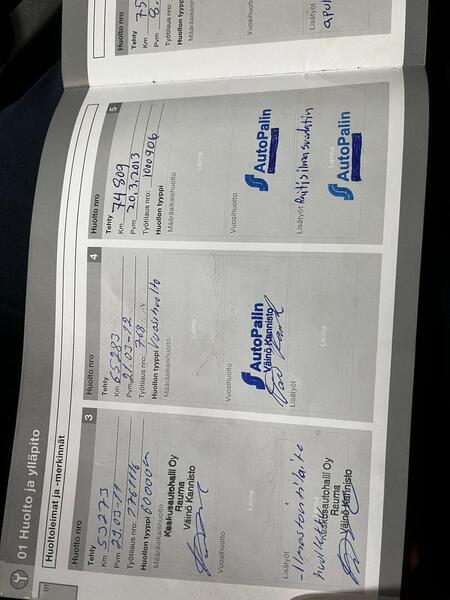 01 Huolto ja ylläpito
Huoltoleimat ja -merkinnät
Huolto nro 3
Tehty
Km 53273
Pvm 29.03-11
Työtilaus nro:
Huollon tyyppi 60000
Määräaikaishuolto
Keskusautohalli Oy
Rauma
Väinö Kannisto
Lisätyöt
-Ilmastointilaite
huollettu
Keskusautohalli Oy
Rauma
Väinö Kannisto
Huolto nro 4
Tehty
Km 65283
Pvm 21.03-12
Työtilaus nro: 708
Huollon tyyppi Vuosihuolto
Määräaikaishuolto
Leima
Vuosihuolto
AutoPalin
Väinö Kannisto
Lisätyöt
Leima
Huolto nro 5
Tehty
Km 74809
Pvm 20.3.2013
Työtilaus nro: 1000906
Huollon tyyppi
Määräaikaishuolto
Leima
Vuosihuolto
AutoPalin
Lisätyöt Raitisilmasuodatin
Leima
AutoPalin
Huolto nro
Tehty
Km
Pvm
Työtilaus nro:
Huollon tyyppi
Määräaikaishuolto
Vuosihuolto
Lisätyöt
01